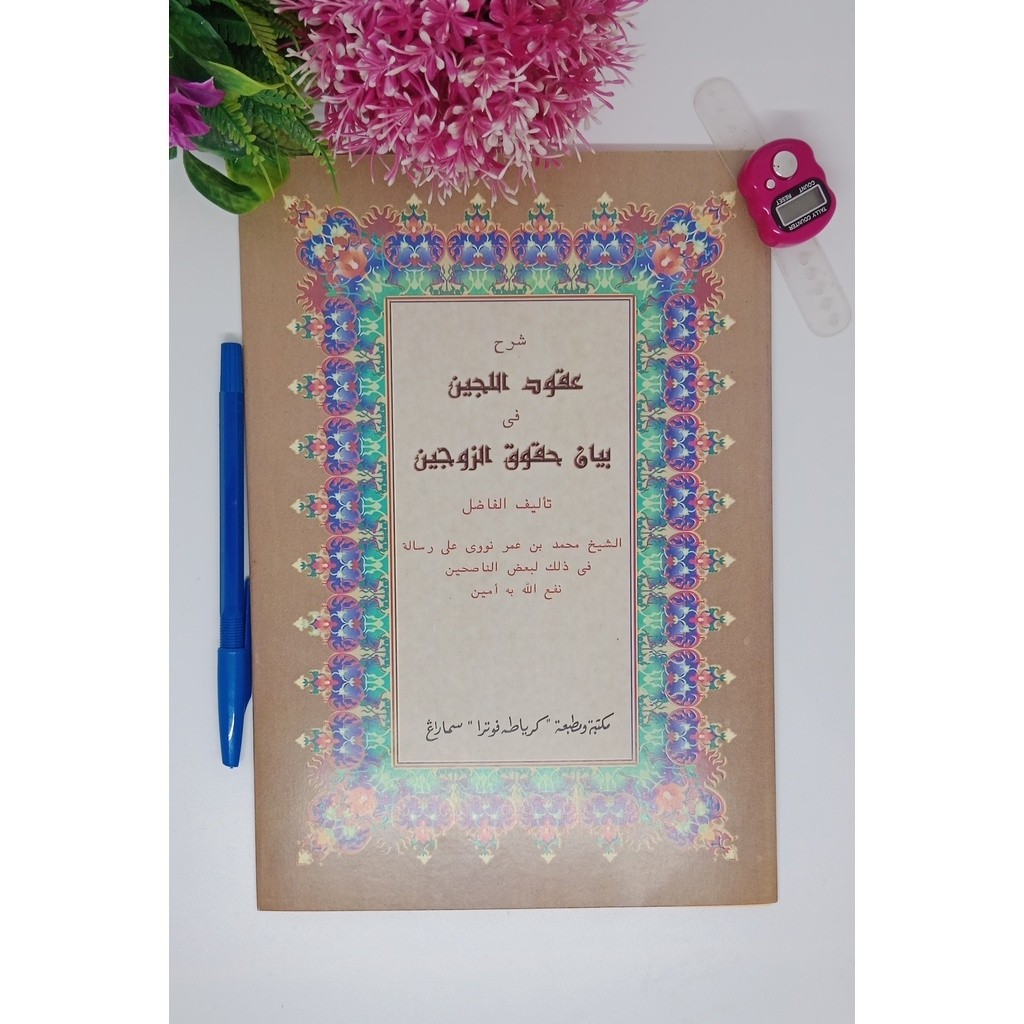 شرح
عقود اللجين
فى
بيان حقوق الزوجين
تأليف الفاضل
الشيخ محمد بن عمر نووى على رسالة
فى ذلك لبعض الناصحين
نفع الله به أمين
مكتبة ومطبعة "كرياطه فوترا" سماراڠ
TALLY COUNTER
COUNT
RESET